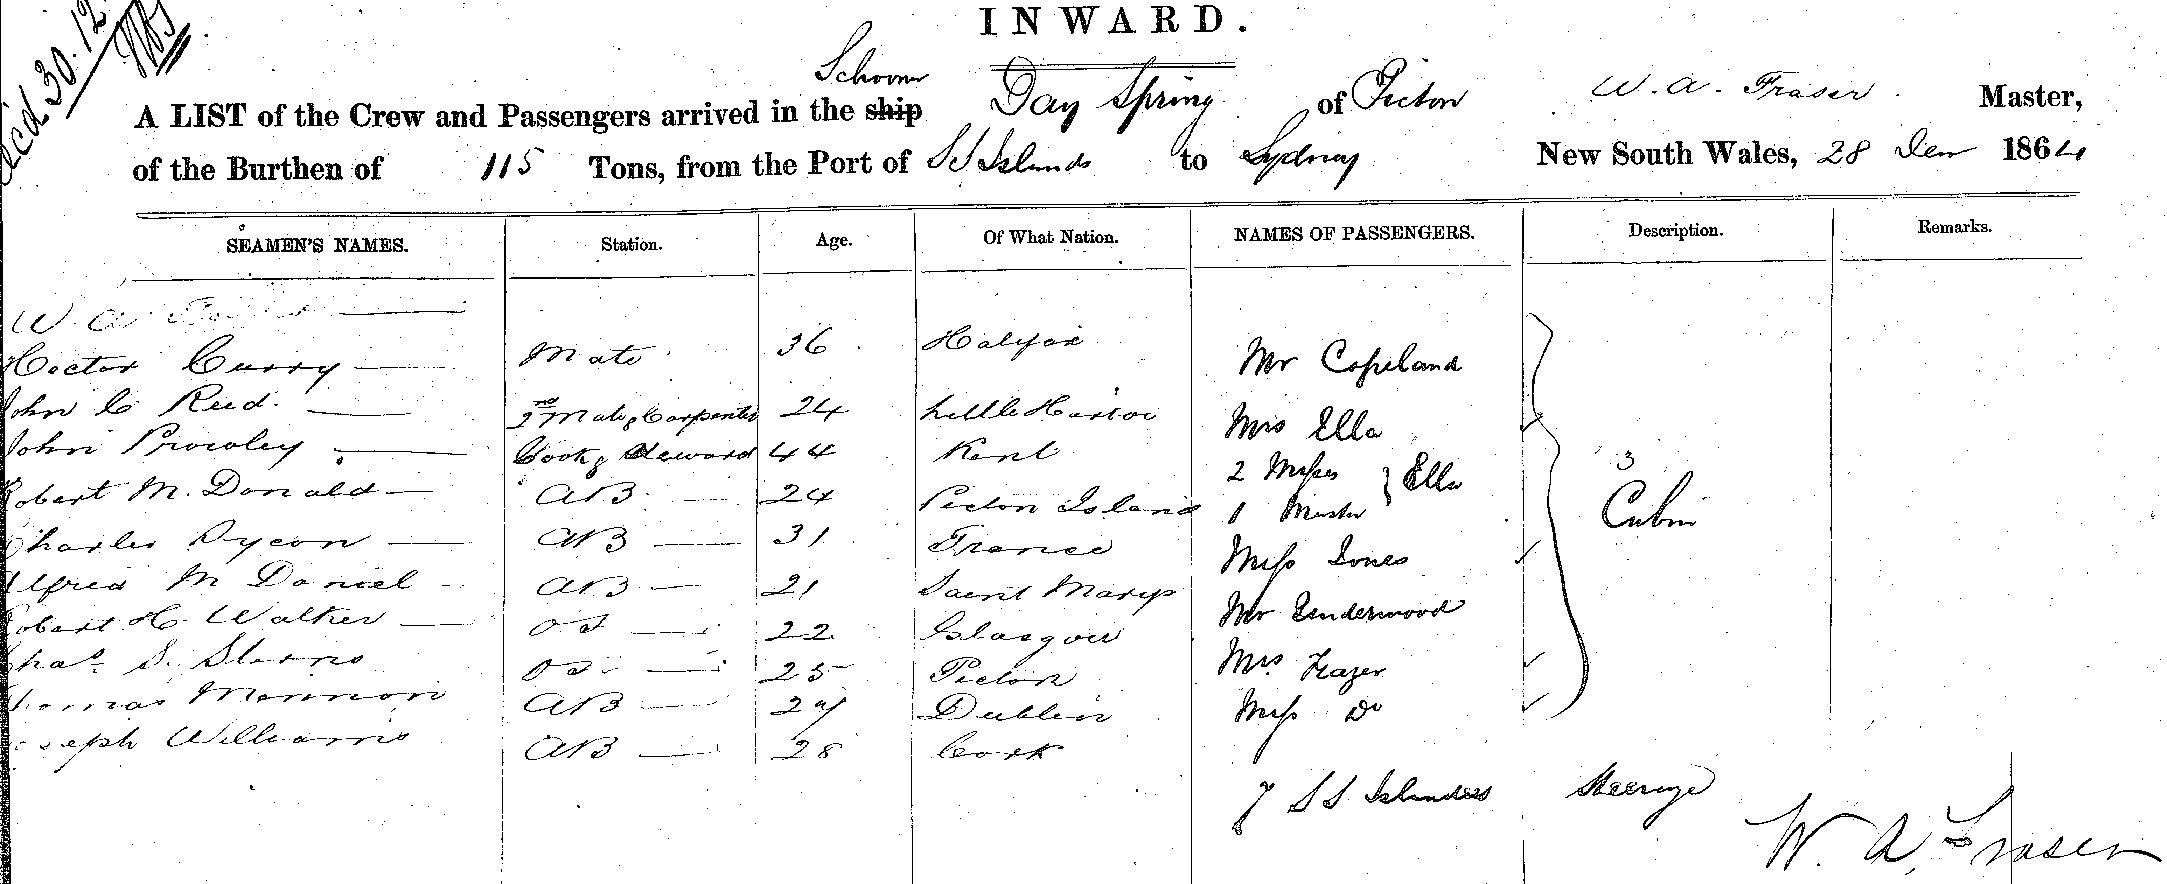 INWARD.
30.12
Schooner
A LIST of the Crew and Passengers arrived in the ship Day Spring of Picton W. A. Fraser Master,
of the Burthen of 115 Tons, from the Port of S S Islands to Sydney New South Wales, 28 Decr 1864
SEAMEN'S NAMES. Station. Age. Of What Nation. NAMES OF PASSENGERS. Description. Remarks.
W. A.
Hector Curry Mate 36 Halifax
John C Reed. 2nd Mate & Carpenter 24 Little Harbor
John Prowley Cook & Steward 44 Kent
Robert M. Donald AB 24 Picton Island
Charles Dycon AB 31 France
Alfred M Daniel AB 21 Saint Marys
Robert H. Walker OS 22 Glasgow
Chas. S. Stearns OS 25 Picton
Thomas Mannon AB 27 Dublin
Joseph Williams AB 28 Cork
Mr Copeland
Mrs Ella
2 Misses } Ella
1 Master
Miss Jones
Mr Underwood
Mrs. Frazer
Miss Do
3
Cabin
7 S S Islanders Steerage
W. A. Fraser